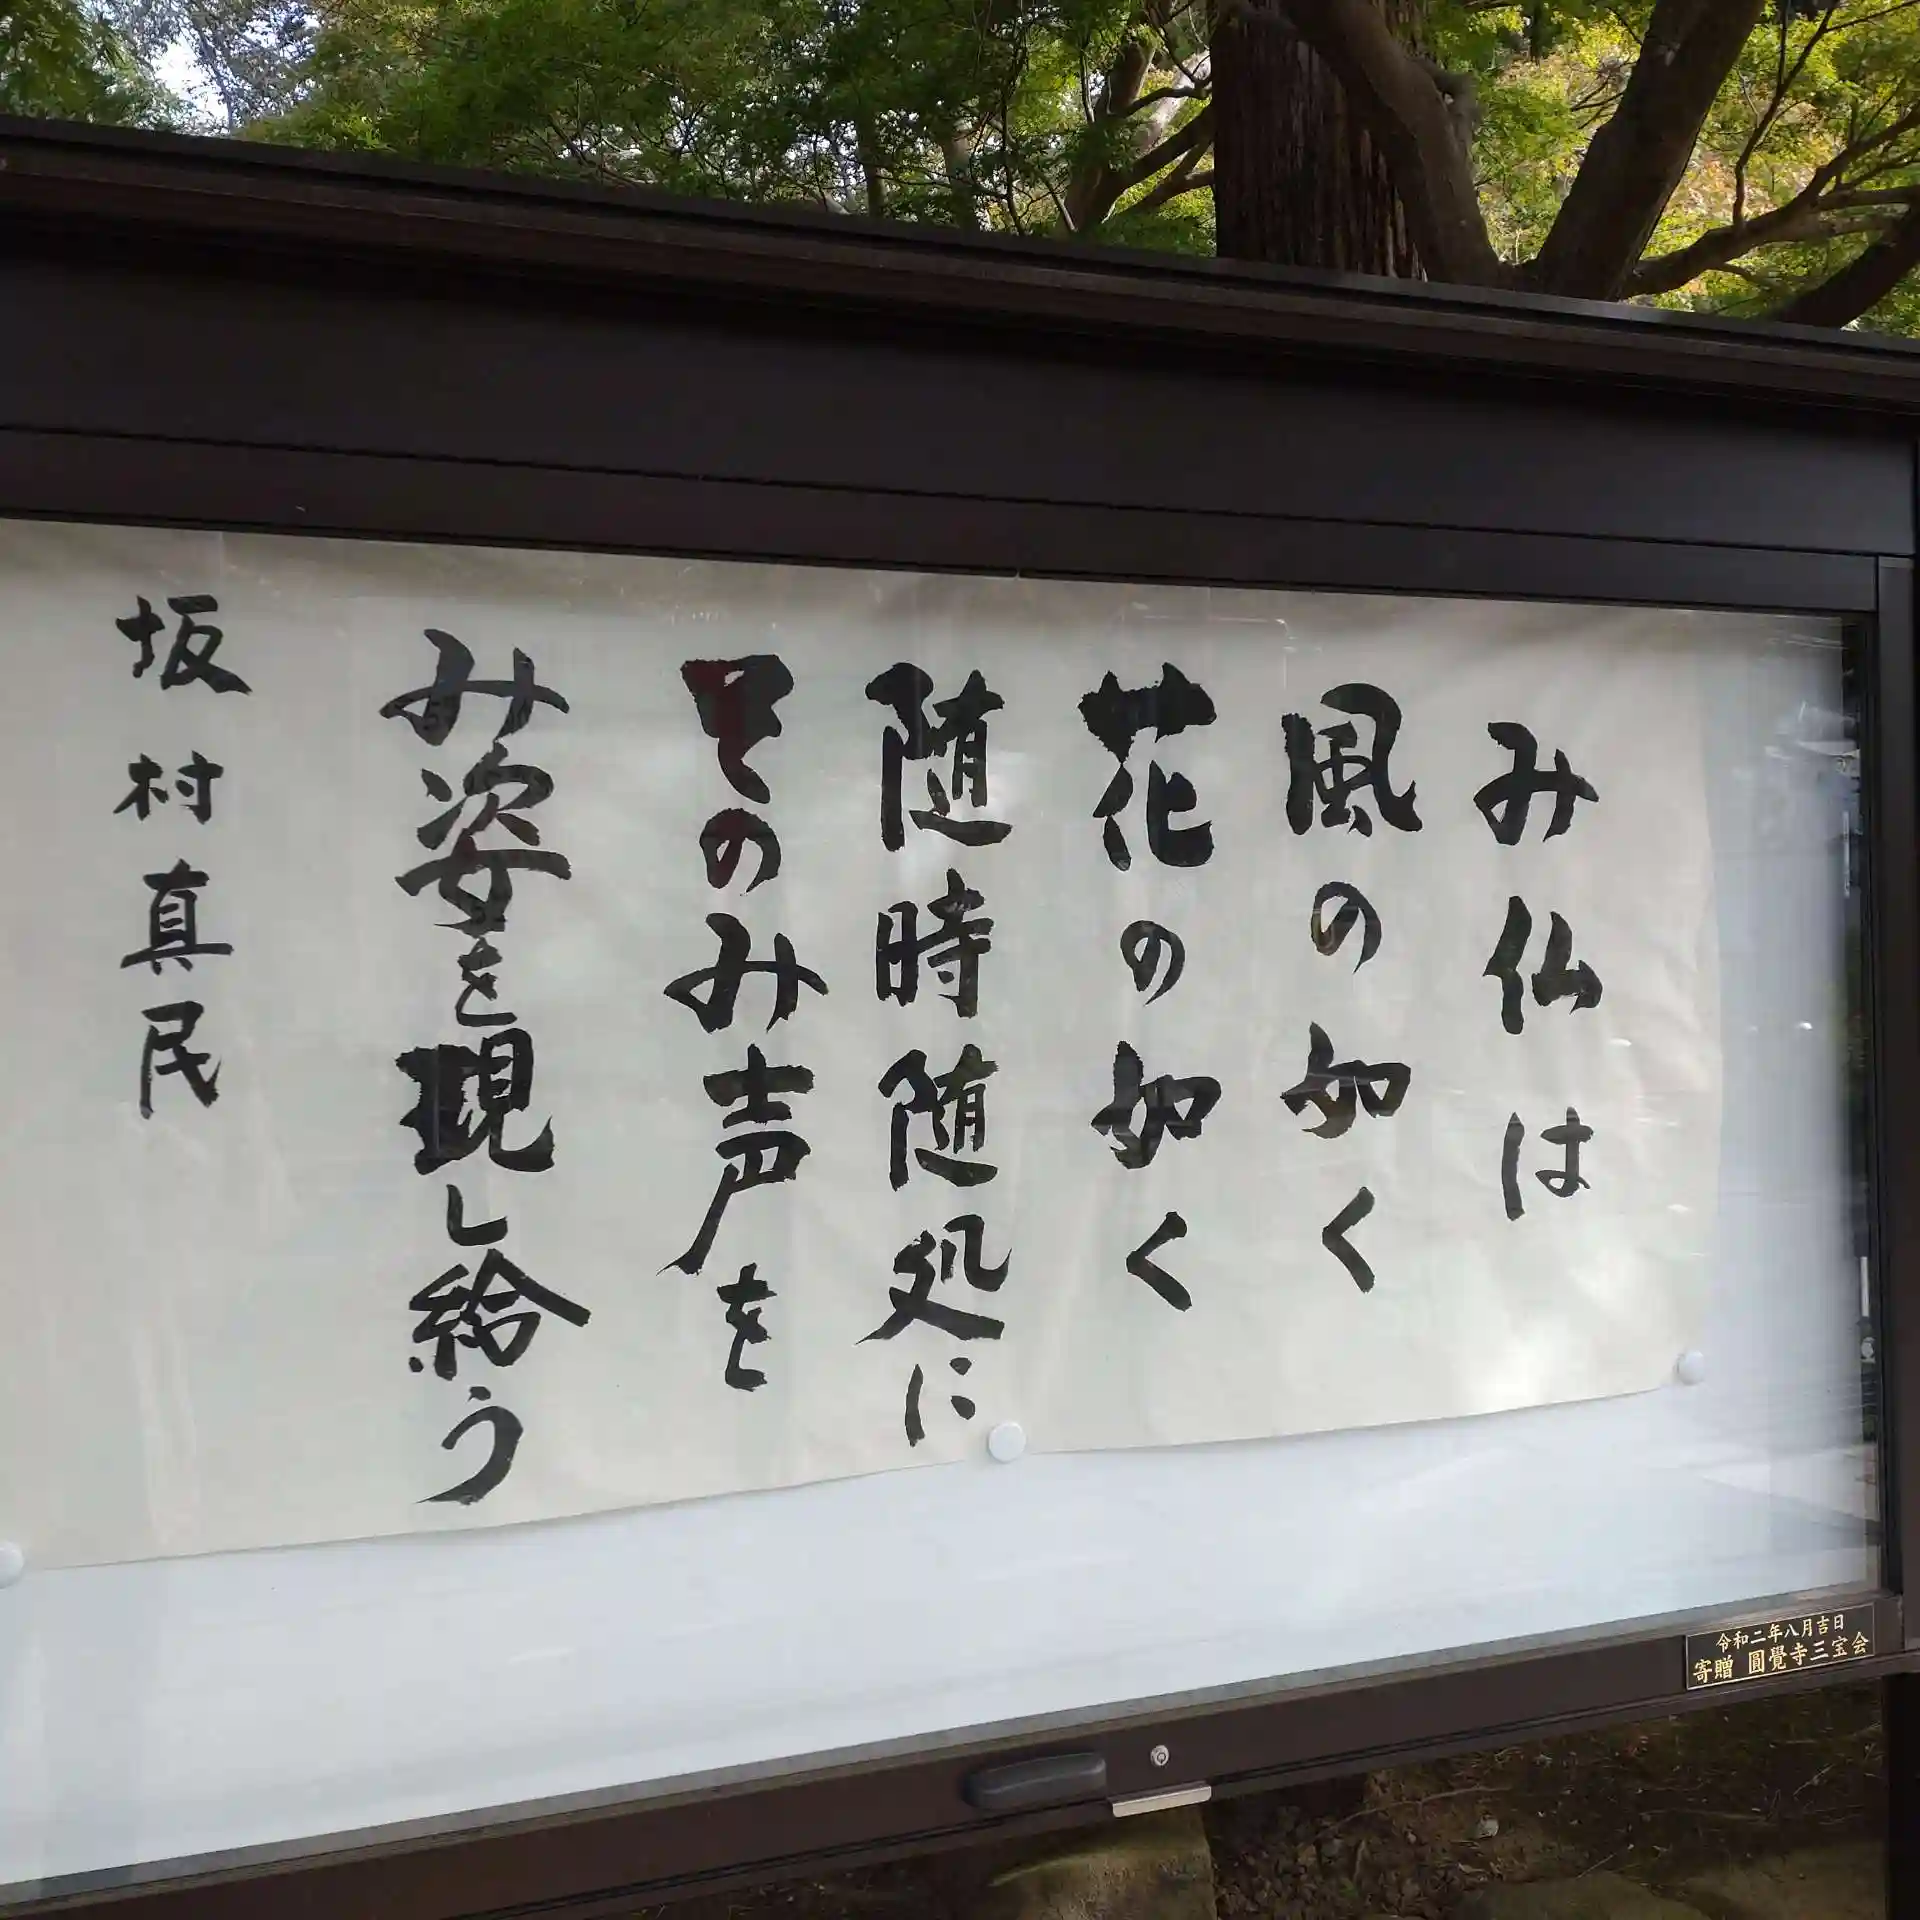 み仏は
風の如く
花の如く
随時随処に
そのみ声を
み姿を現し給う
坂村真民
令和二年八月吉日
寄贈 圓覺寺三宝会